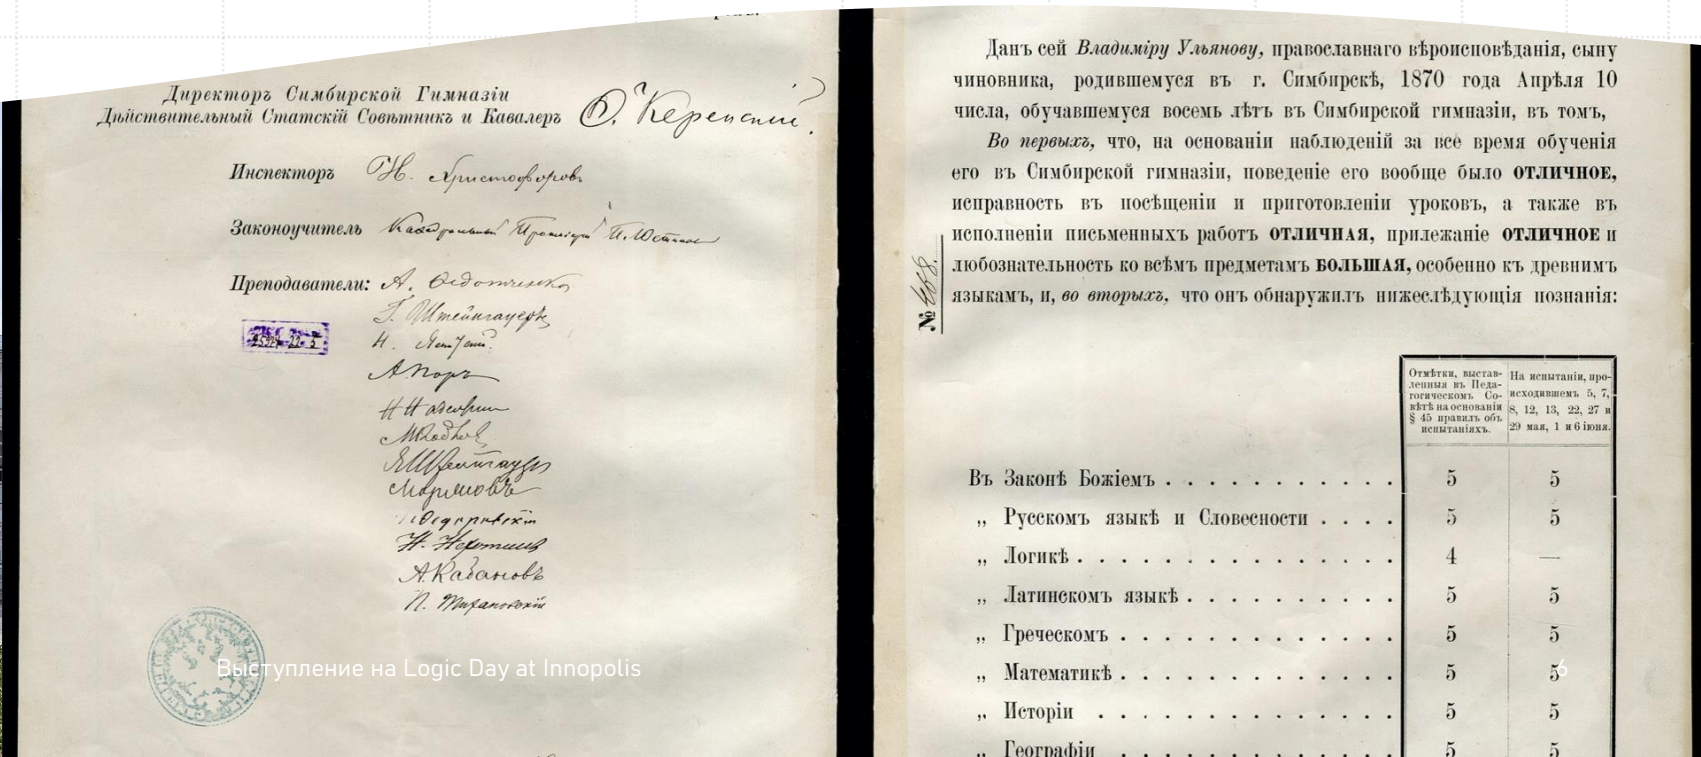 Директоръ Симбирской Гимназіи
Дѣйствительный Статскій Совѣтникъ и Кавалеръ Ѳ. Керенскій.
Инспекторъ И. Христофоровъ
Законоучитель Каѳедральный П. Юстиновъ
Преподаватели: А. Ѳедотченко
Г. Штейнгауеръ
Н.
А. Поръ
Н. Нехотяевъ
А. Кабановъ
Выступление на Logic Day at Innopolis
Данъ сей Владиміру Ульянову, православнаго вѣроисповѣданія, сыну
чиновника, родившемуся въ г. Симбирскѣ, 1870 года Апрѣля 10
числа, обучавшемуся восемь лѣтъ въ Симбирской гимназіи, въ томъ,
Во первыхъ, что, на основаніи наблюденій за все время обученія
его въ Симбирской гимназіи, поведеніе его вообще было ОТЛИЧНОЕ,
исправность въ посѣщеніи и приготовленіи уроковъ, а также въ
исполненіи письменныхъ работъ ОТЛИЧНАЯ, прилежаніе ОТЛИЧНОЕ и
любознательность ко всѣмъ предметамъ БОЛЬШАЯ, особенно къ древнимъ
языкамъ, и, во вторыхъ, что онъ обнаружилъ нижеслѣдующія познанія:
№ 468.
Отмѣтки, выстав-
ленныя въ Педа-
гогическомъ Со-
вѣтѣ на основаніи
§ 45 правилъ объ
испытаніяхъ.
На испытаніи, про-
исходившемъ 5, 7,
8, 12, 13, 22, 27 и
29 мая, 1 и 6 іюня.
Въ Законѣ Божіемъ . . . . . . . . . . . . 5 5
„ Русскомъ языкѣ и Словесности . . . . 5 5
„ Логикѣ . . . . . . . . . . . . . . . . 4 —
„ Латинскомъ языкѣ . . . . . . . . . . . 5 5
„ Греческомъ . . . . . . . . . . . . . . 5 5
„ Математикѣ . . . . . . . . . . . . . . 5 5
6
„ Исторіи . . . . . . . . . . . . . . . 5 5
„ Географіи . . . . . . . . . . . . . . 5 5